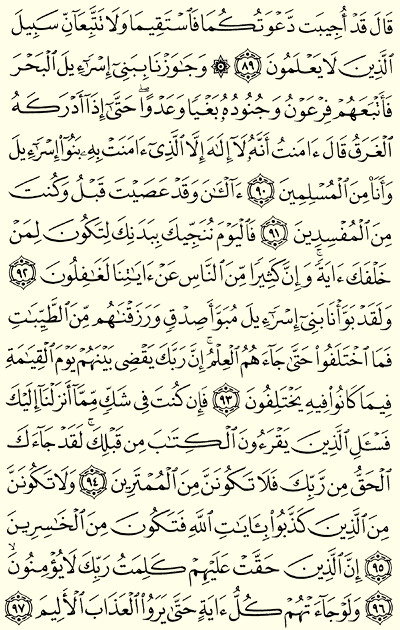 قَالَ قَدْ أُجِيبَت دَّعْوَتُكُمَا فَٱسْتَقِيمَا وَلَا تَتَّبِعَآنِّ سَبِيلَ
ٱلَّذِينَ لَا يَعْلَمُونَ ﴿٨٩﴾ ۞ وَجَٰوَزْنَا بِبَنِىٓ إِسْرَٰٓءِيلَ ٱلْبَحْرَ
فَأَتْبَعَهُمْ فِرْعَوْنُ وَجُنُودُهُۥ بَغْيًا وَعَدْوًا ۖ حَتَّىٰٓ إِذَآ أَدْرَكَهُ
ٱلْغَرَقُ قَالَ ءَامَنتُ أَنَّهُۥ لَآ إِلَٰهَ إِلَّا ٱلَّذِىٓ ءَامَنَتْ بِهِۦ بَنُوٓا۟ إِسْرَٰٓءِيلَ
وَأَنَا۠ مِنَ ٱلْمُسْلِمِينَ ﴿٩٠﴾ ءَآلْـَٰٔنَ وَقَدْ عَصَيْتَ قَبْلُ وَكُنتَ
مِنَ ٱلْمُفْسِدِينَ ﴿٩١﴾ فَٱلْيَوْمَ نُنَجِّيكَ بِبَدَنِكَ لِتَكُونَ لِمَنْ
خَلْفَكَ ءَايَةً ۚ وَإِنَّ كَثِيرًا مِّنَ ٱلنَّاسِ عَنْ ءَايَٰتِنَا لَغَٰفِلُونَ ﴿٩٢﴾
وَلَقَدْ بَوَّأْنَا بَنِىٓ إِسْرَٰٓءِيلَ مُبَوَّأَ صِدْقٍ وَرَزَقْنَٰهُم مِّنَ ٱلطَّيِّبَٰتِ
فَمَا ٱخْتَلَفُوا۟ حَتَّىٰ جَآءَهُمُ ٱلْعِلْمُ ۚ إِنَّ رَبَّكَ يَقْضِى بَيْنَهُمْ يَوْمَ ٱلْقِيَٰمَةِ
فِيمَا كَانُوا۟ فِيهِ يَخْتَلِفُونَ ﴿٩٣﴾ فَإِن كُنتَ فِى شَكٍّ مِّمَّآ أَنزَلْنَآ إِلَيْكَ
فَسْـَٔلِ ٱلَّذِينَ يَقْرَءُونَ ٱلْكِتَٰبَ مِن قَبْلِكَ ۚ لَقَدْ جَآءَكَ
ٱلْحَقُّ مِن رَّبِّكَ فَلَا تَكُونَنَّ مِنَ ٱلْمُمْتَرِينَ ﴿٩٤﴾ وَلَا تَكُونَنَّ
مِنَ ٱلَّذِينَ كَذَّبُوا۟ بِـَٔايَٰتِ ٱللَّهِ فَتَكُونَ مِنَ ٱلْخَٰسِرِينَ
﴿٩٥﴾ إِنَّ ٱلَّذِينَ حَقَّتْ عَلَيْهِمْ كَلِمَتُ رَبِّكَ لَا يُؤْمِنُونَ ۙ
﴿٩٦﴾ وَلَوْ جَآءَتْهُمْ كُلُّ ءَايَةٍ حَتَّىٰ يَرَوُا۟ ٱلْعَذَابَ ٱلْأَلِيمَ ﴿٩٧﴾